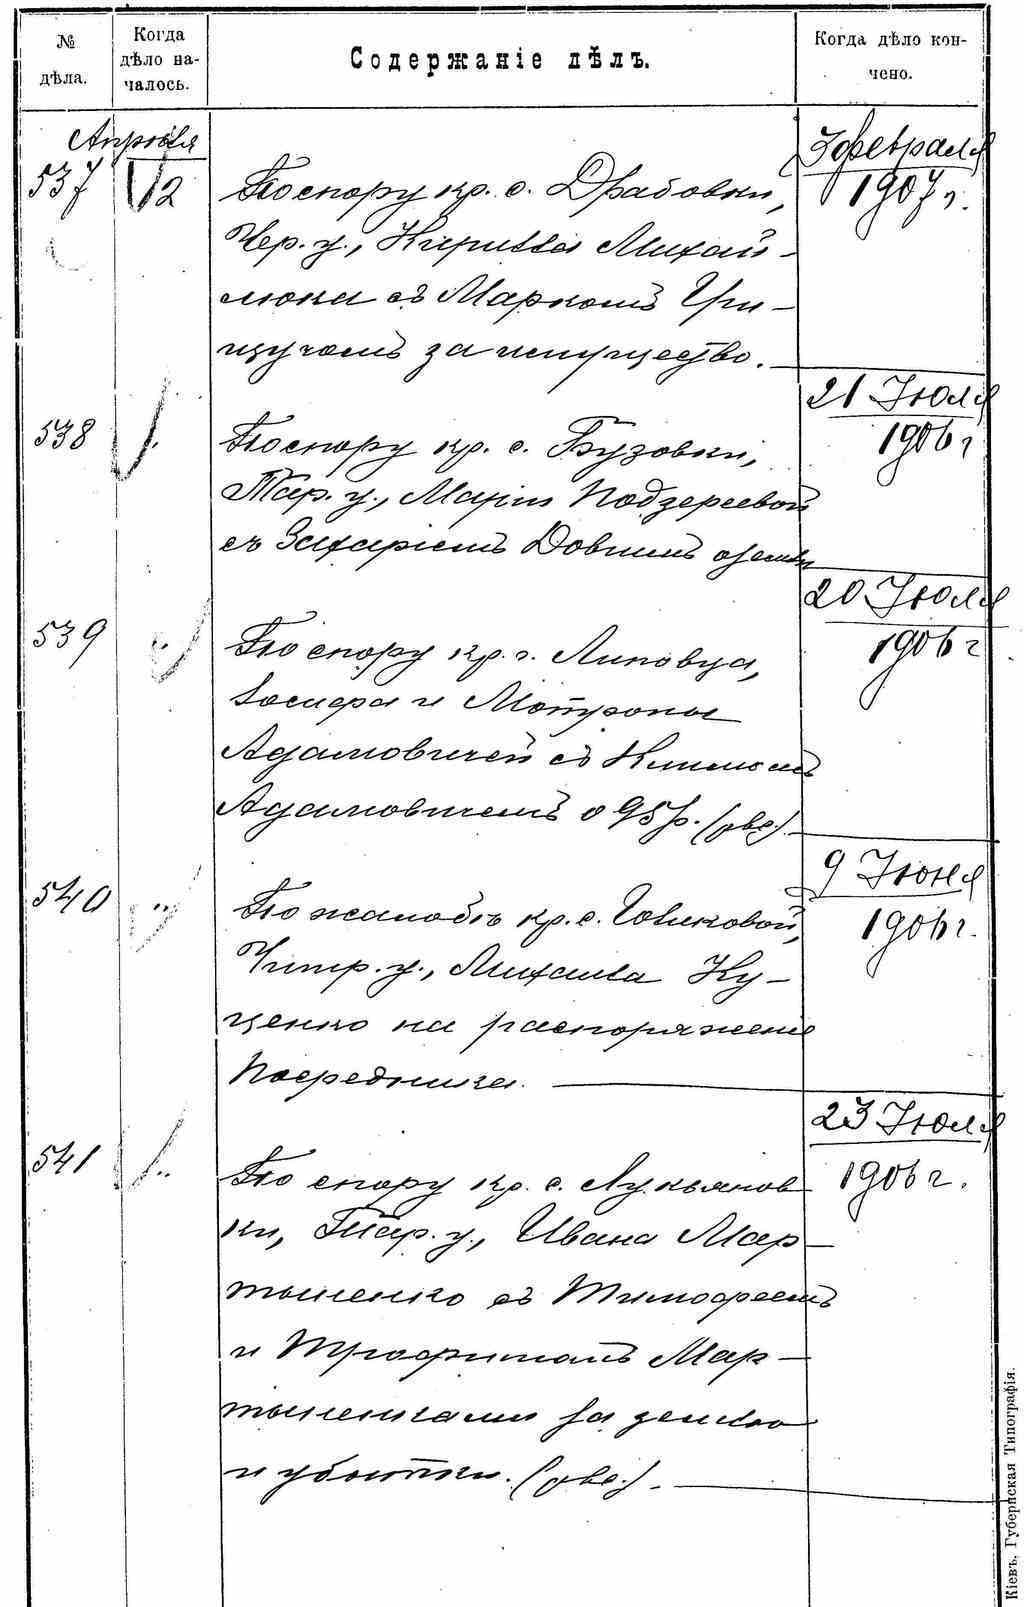 №
дѣла.
Когда
дѣло на-
чалось.
Содержаніе дѣлъ.
Когда дѣло кон-
чено.
Апрѣля
537
12
По спору кр. с. Драбовки,
Чер. у., Кирилла Михай-
люка съ Маркомъ Гри-
щучомъ за имущество.
7 февраля
1907 г.
538
По спору кр. с. Бузовки,
Тар. у., Маріи Подзереевой
съ Захаріемъ Довгимъ о землѣ
21 Іюля
1906 г
539
"
По спору кр. г. Липовца,
Іосифа и Мотроны
Адамовичей съ Климомъ
Адамовичемъ о 95 р. (рвс.)
20 Іюля
1906 г
540
"
По жалобѣ кр. с.
Чигир. у., Михаила Ку-
ценко на распоряженіе
Посредника.
9 Іюня
1906 г.
541
"
По спору кр. с. Лукьянов
ки, Тар. у., Ивана Мар-
тыненко съ Тимофеемъ
и Трофимомъ Мар-
тыненками за землю
и убытки. (рвс.).
23 Іюля
1906 г.
Кіевъ, Губернская Типографія.